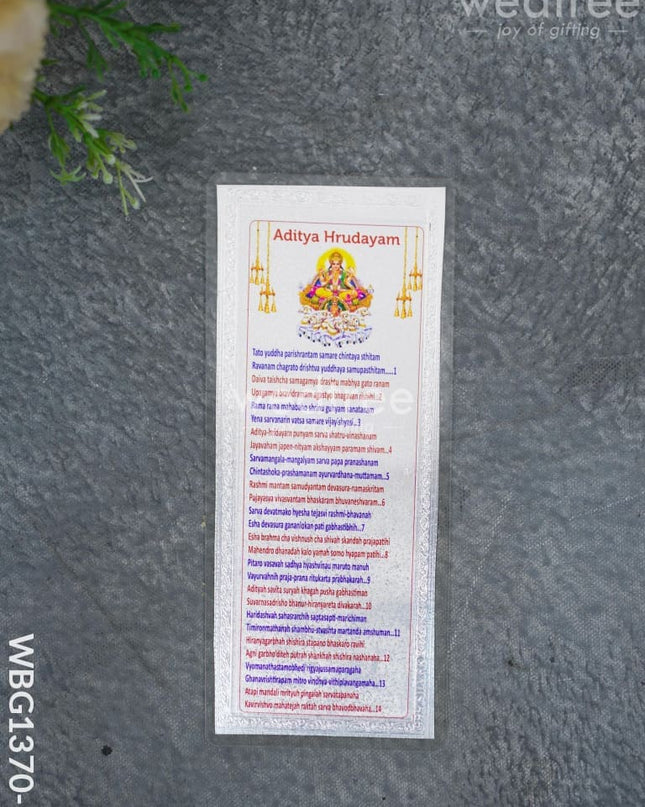 wedtree
joy of gifting
Aditya Hrudayam
Tato yuddha parishrantam samare chintaya sthitam
Ravanam chagrato drishtva yuddhaya samupasthitam.....1
Daiva taishcha samagamya drashtu mabhya gato ranam
Upagamya bravidramam agastyo bhagavan rishihi..2
Rama rama mahabaho shrinu guhyam sanatanam
Yena sarvanarin vatsa samare vijayishyasi..3
Aditya-hridayam punyam sarva shatru-vinashanam
Jayavaham japen-nityam akshayyam paramam shivam...4
Sarvamangala-mangalyam sarva papa pranashanam
Chintashoka-prashamanam ayurvardhana-muttamam..5
Rashmi mantam samudyantam devasura-namaskritam
Pujayasva vivasvantam bhaskaram bhuvaneshvaram...6
Sarva devatmako hyesha tejasvi rashmi-bhavanah
Esha devasura gananlokan pati gabhastibhih...7
Esha brahma cha vishnush cha shivah skandah prajapatihi
Mahendro dhanadah kalo yamah somo hyapam patihi...8
Pitaro vasavah sadhya hyashvinau maruto manuh
Vayurvahnih praja-prana ritukarta prabhakarah...9
Adityah savita suryah khagah pusha gabhastiman
Suvarnasadrisho bhanur-hiranyareta divakarah...10
Haridashvah sahasrarchih saptasapti-marichiman
Timironmathanah shambhu-stvashta martanda amshuman...11
Hiranyagarbhah shishira stapano bhaskaro ravihi
Agni garbho'diteh putrah shankhah shishira nashanaha...12
Vyomanathastamobhedi rigyajussamaparagaha
Ghanavrishtirapam mitro vindhya-vithiplavangamaha...13
Atapi mandali mrityuh pingalah sarvatapanaha
Kavirvishvo mahatejah raktah sarva bhavodbhavaha...14
WBG1370-